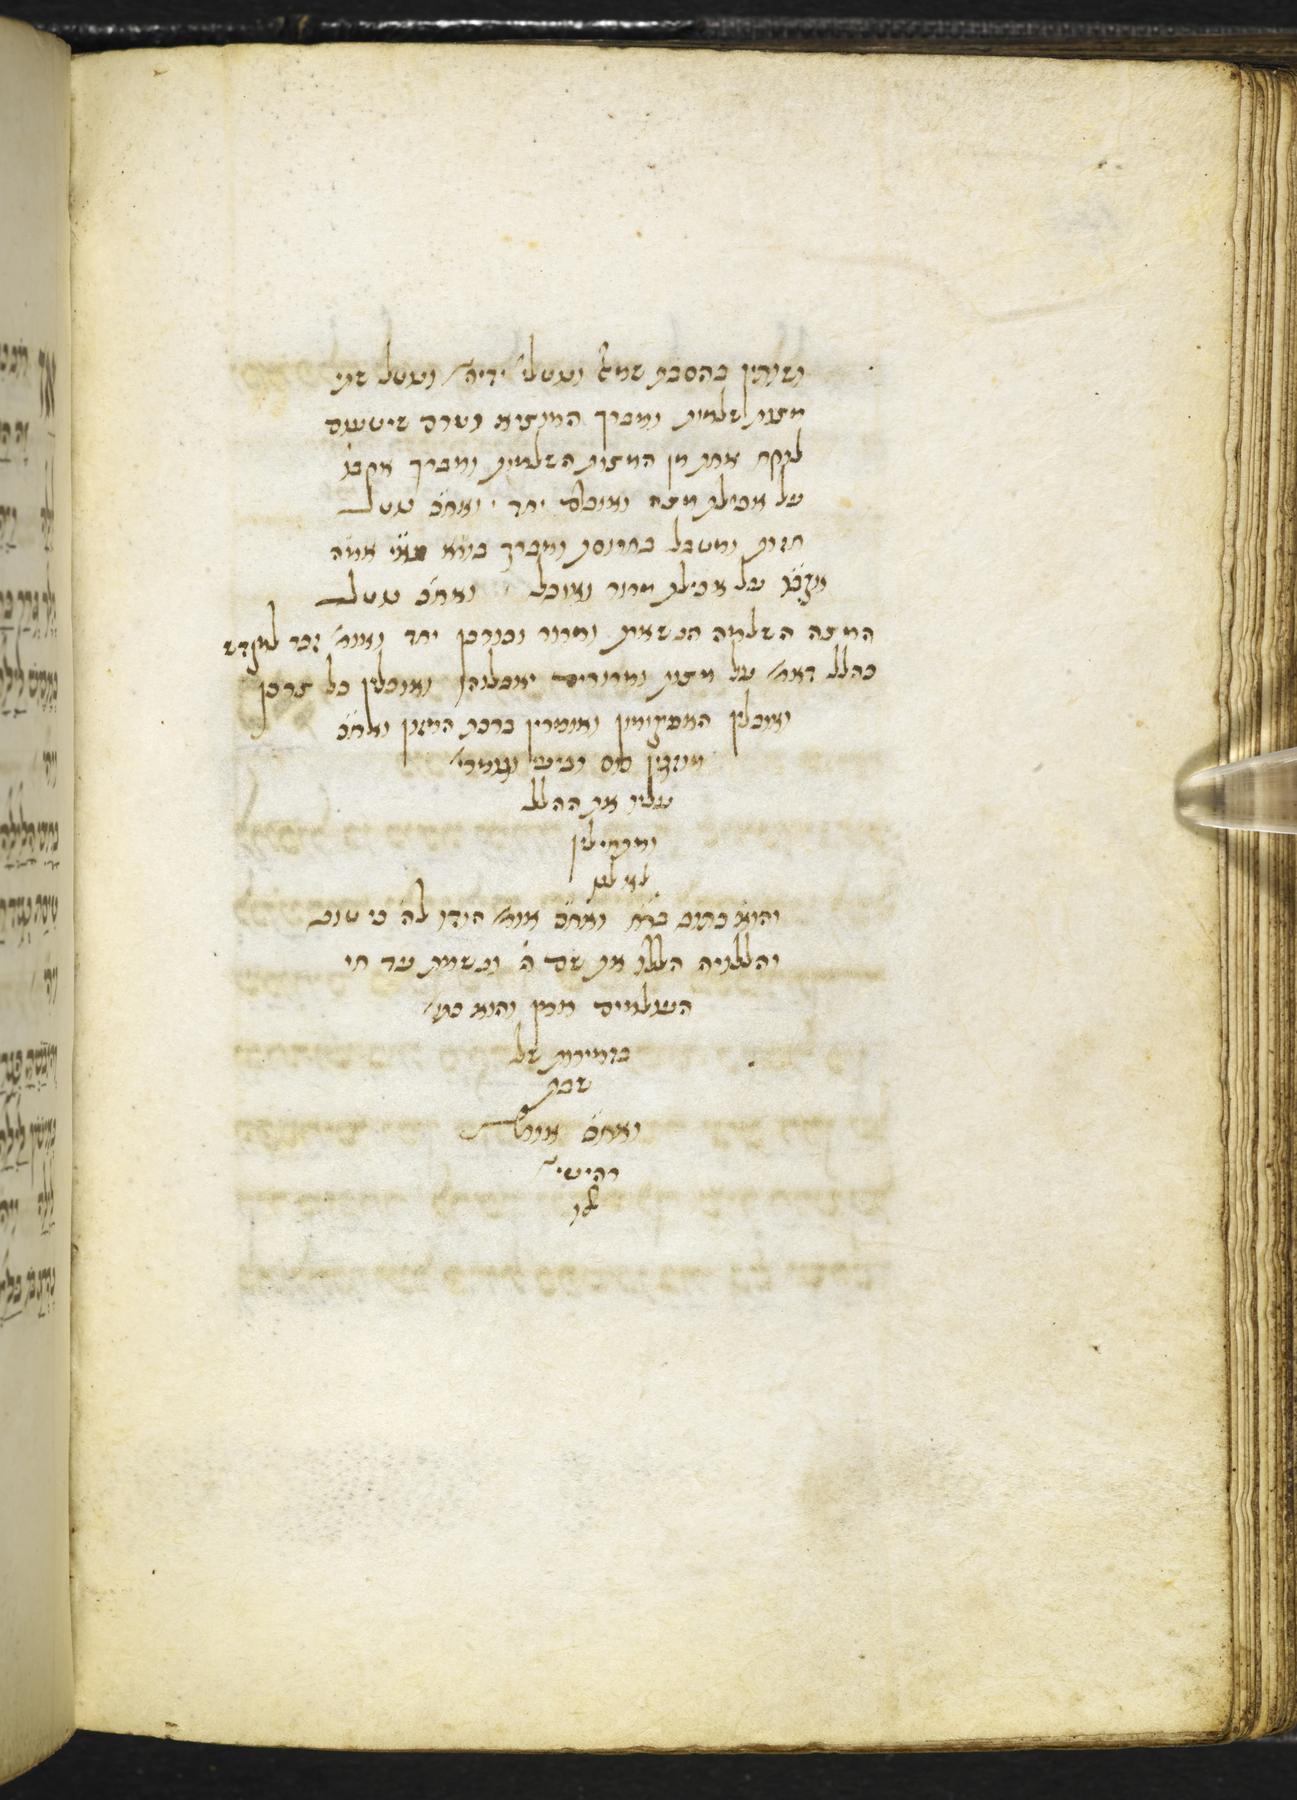 ושותין בהסבת שמאל ונוטלי׳ ידיה׳ ונוטל שתי
מצות שלמות ומברך המוציא וטרם שיטעום
לוקח אחת מן המצות השלמות ומברך אקבו
על אכילת מצה ואוכלם יחד ואח״כ נוטל
חזרת ומטבל בחרוסת ומברך בא״י אמ״ה
אקבו על אכילת מרור ואוכל ואח״כ נוטל
המצה השלמה הנשארת ומרור וכורכן יחד ואומ׳ זכר למקדש
כהלל דאמ׳ על מצות ומרורים יאכלוהו ואוכלין כל צרכן
ואוכלין האפיקומין ואומרין ברכת המזון ואח״כ
מוזגין כוס רביעי וגומרי׳
עליו את ההלל
ומתחילין
לא לנו
והוא כתוב בר״ח ואח״כ אומ׳ הודו לה׳ כי טוב
והללויה הללו את שם ה׳ ונשמת עד חי
העולמים חרוץ והוא כתו׳
בזמירות של
שבת
ואח״כ אומ׳
ויהי בחצי